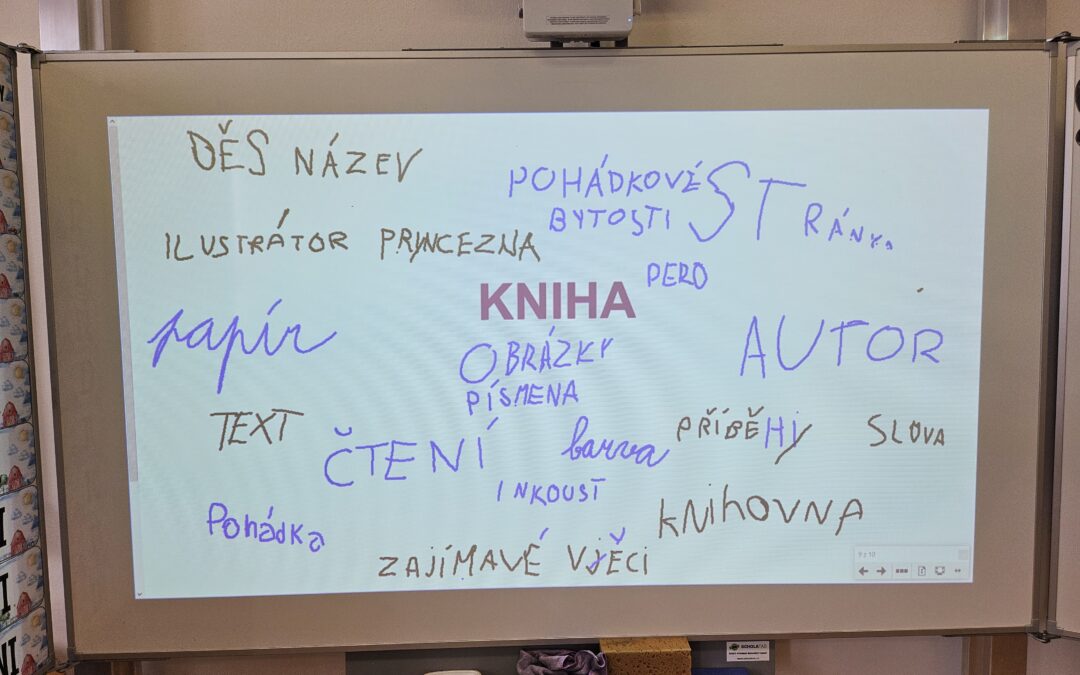 DĚS NÁZEV
POHÁDKOVÉ
BYTOSTI
STRÁNKA
ILUSTRÁTOR PRYNCEZNA
PERO
KNIHA
papír
OBRÁZKY
AUTOR
PÍSMENA
TEXT
ČTENÍ
barva
PŘÍBĚHY
SLOVA
INKOUST
Pohádka
KNIHOVNA
ZAJÍMAVÉ VJĚCI
9 z 10